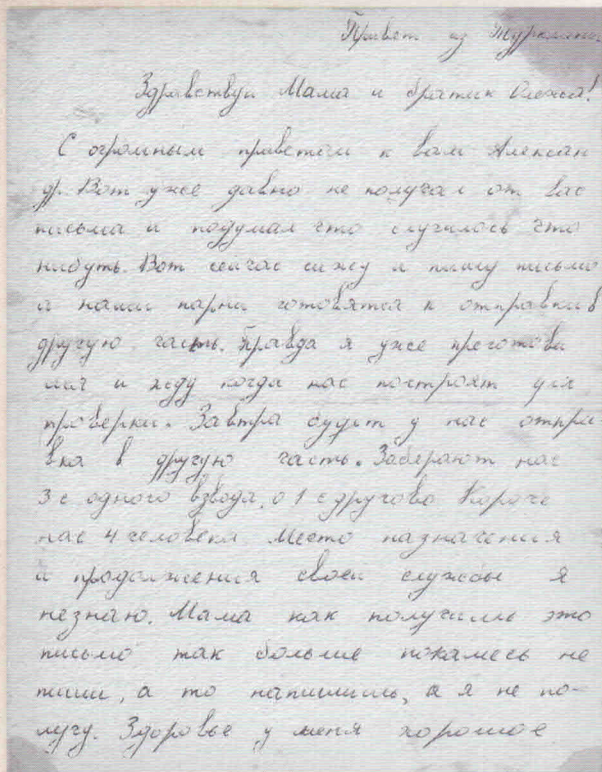 Привет из Туркмени
Здравствуй Мама и братик Олежка!
С огромным приветом к вам Алексан
др. Вот уже давно не получал от вас
письма и подумал что случилось что
нибуть. Вот сейчас сижу и пишу письмо
а наши парни готовятся к отправки в
другую часть. Правда я уже преготови
лся и жду когда нас построят для
проверки. Завтра будит у нас отпра
вка в другую часть. Заберают нас
3 с одного взвода, а 1 с другово Короче
нас 4 человека. Место назначения
и продолжения своей службы я
незнаю. Мама как получишь это
письмо так больше покамесь не
пиши, а то напишишь, а я не по-
лучу. Здоровье у меня хорошое